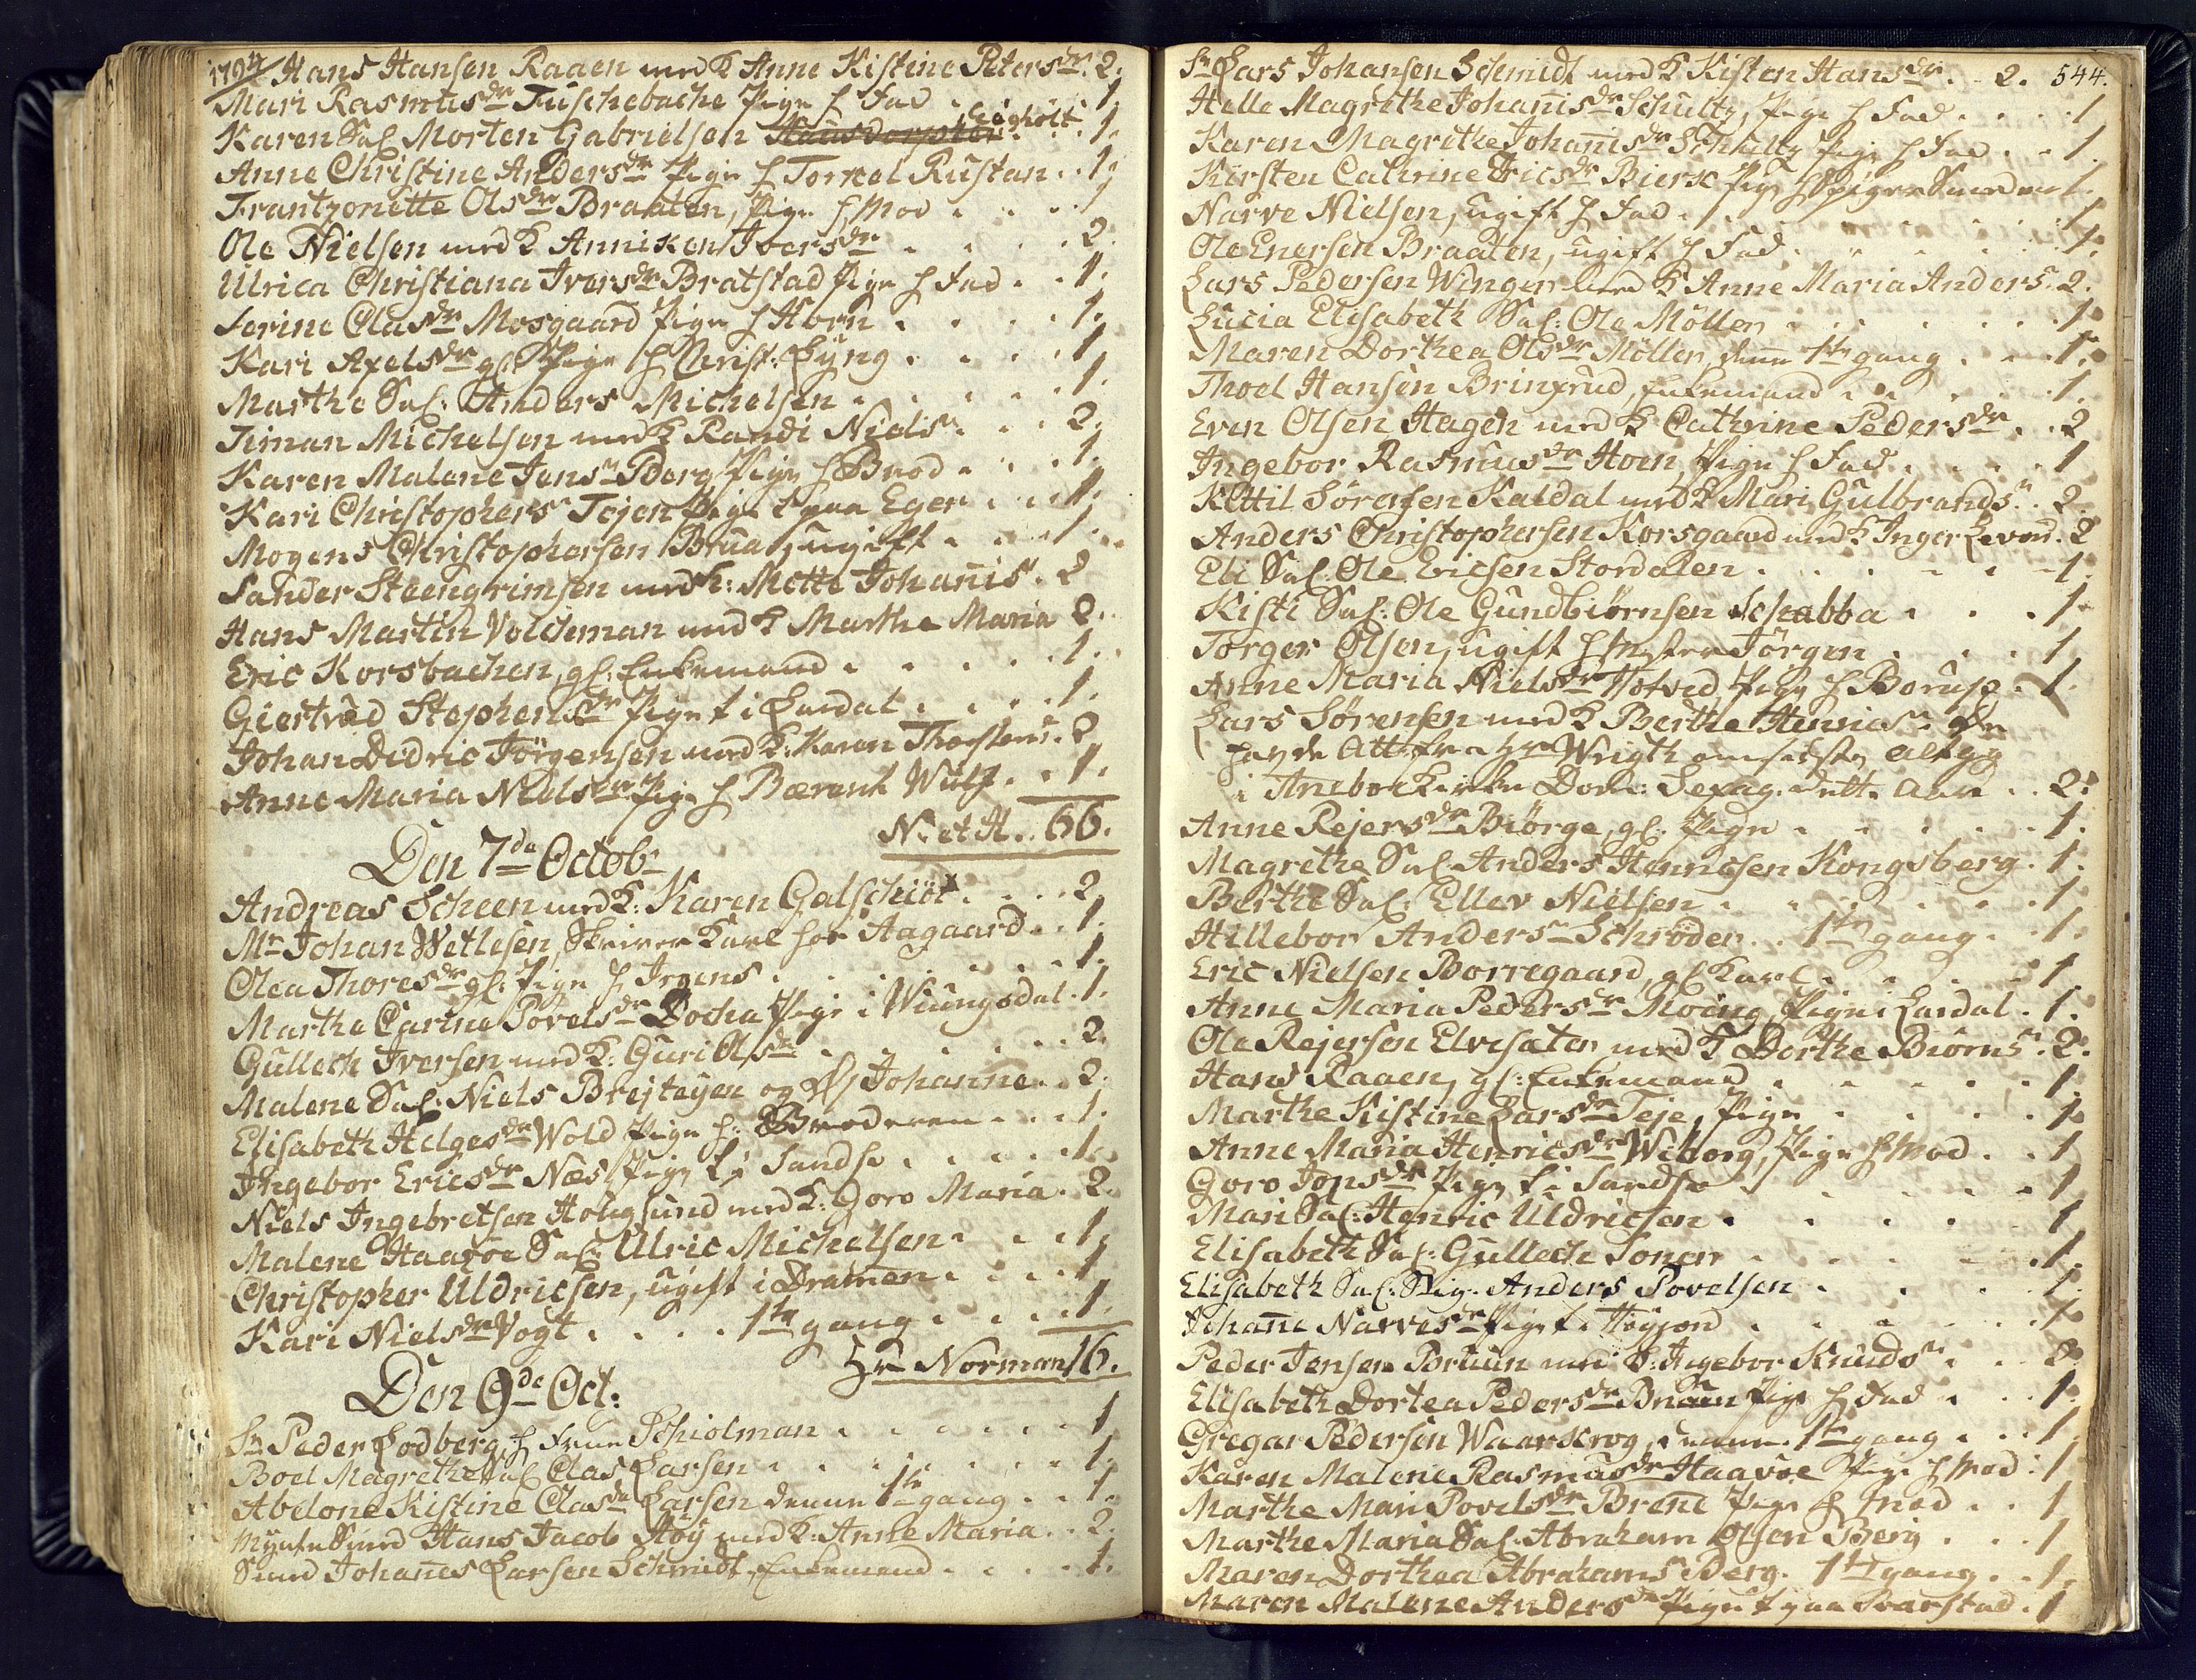 1794 Hans Hansen Raaen med K Anne Kistine Petersdr. 2.
Mari Rasmusdr Fuschebache Pige h Fad . 1
Karen Sal Morten Gabrielsen . 1.
Anne Christine Andersdr Pige h Torkel Rustan . . 1.
Frantzonette Olsdr Braaten, Pige h Mod . . . . 1
Ole Nielsen med K Anniken Iversdr . . . . 2.
Ulrica Christiana Iversdr Bratstad Pige h Fad . . 1.
Serine Clasdr Mosgaard Pige h Horn . . . . 1.
Kari Axelsdr gl Pige h Christ: Lyng . . . . 1
Marthe Sal. Anders Michelsen . . . . . 1.
Timan Michelsen med K Randi Niels . . . 2.
Karen Malene Jens Berg Pige h Brod . . . 1.
Kari Christophers Tejen Pige t paa Eger . . . 1.
Mogens Christophersen Brua, ugift . . . 1.
Sander Steengrimsen med K: Mette Johannis . 2
Hans Martin Voldeman med K Marthe Maria 2.
Eric Korsbachen, gl: Enkemand . . . . . 1.
Giertrud Stephensdr Pige t i Lardal . . . . 1.
Johan Didric Jörgensen med K: Karen Thorstens . 2
Anne Maria Nielsdr Pige h Berent Wulf . . 1.
N. et H. . 66.
Den 7de Octobr
Andreas Scheen med K: Karen Galschiöt . . . 2
Mr Johan Wetlesen, Skriver Karl hos Aagaard . . 1.
Olea Thoresdr gl. Pige h Irgens . . . . . . 1.
Marthe Carine Povelsdr Docha Pige i Wiungsdal . 1.
Gullech Iversen med K: Guri Olsdr . . . . . 2.
Malene Sal: Niels Brejteyen og Johanne . . 2.
Elisabeth Helgesdr Wold Pige h: Broderen . . . 1.
Ingebor Ericsdr Næs Pige t i Sandse . . . . . 1.
Niels Ingebretsen Hougsund med K: Goro Maria . 2.
Malene Haavøe Sal: Ulric Michelsen . . . 1.
Christopher Uldricsen, ugift i Dramen . . . . 1
Kari Nielsdr Vogt . . . . 1te gang . . . . 1.
Hr Norman 16.
Den 9de Oct:
Sr Peder Lodberg h Frue Schiolman . . . . . . 1
Boel Magrethe Sal Clas Larsen . . . . . . . 1.
Abelone Kistine Clasdr Larsen denne 1te gang . . 1.
Mynte Smed Hans Jacob Støy med K. Anne Maria . . 2.
Smed Johanes Larsen Schmidt, Enkemand . . . . 1.
Sr Lars Johansen Schmidt med K Kisten Hansdr . . 2. 544.
Helle Magrethe Johanisdr Schultz, Pige h Fad . . . . 1
Karen Magrethe Johanisdr Schultz Pige h Fad . . 1.
Kirsten Cathrine Ericsdr Bierse Pige h 1.
Narve Nielsen, ugift h Fad . . . . . . . 1.
Ole Enersen Braaten, ugift h Fad . . . . . . 1.
Lars Pedersen Winger med K Anne Maria Anders . 2.
Lucia Elisabeth Sal: Ole Möller . . . . . . 1.
Maren Dorthea Olsdr Möller, denne 1te gang . . . 1.
Thoel Hansen Brinxrud, Enkemand . . . . . 1.
Even Olsen Hagen med K Cathrine Pedersdr . . 2
Ingebor Rasmusdr Hoen Pige h Fad . . . . 1
Kittil Sörensen Kaldal med K Mari Gulbrands . 2.
Anders Christophersen Korsgaard med K Inger Levord . 2
Eli Sal: Ole Ericsen Stordalen . . . . . 1.
Kisti Sal: Ole Gundbiörnsen Schabba . . . 1.
Torger Olsen, ugift h Jörgen . . . 1
Anne Maria Nielsdr Hotved Pige h Borup . 1.
Lars Sörensen med K Berthe Henrics De
havde Attest fra Hr Wrigth Altgg
i Anebo Kirke Dom: Sexag. dette Aar . . 2.
Anne Rejersdr Biörge, gl. Pige . . . . . 1.
Magrethe Sal Anders Hennesen Kongsberg . 1.
Berthe Sal: Ellev Nielsen . . . . . . 1
Hillebor Andersdr Schröder . . 1te gang . . 1.
Eric Nielsen Borregaard, gl Karl . . . . . 1
Anne Maria Pedersdr Moëng Pige i Lardal . 1.
Ole Rejersen Elvesæter med K Dorthe Biörns . 2.
Hans Raaen, gl: Enkemand . . . . . . 1
Marthe Kistine Larsdr Teje, Pige . . . . 1.
Anne Maria Henricsdr Wiborg, Pige h Mod . . 1
Goro Jonsdr Pige t i Sandse . . . . . 1
Mari Sal: Henric Uldricsen . . . . . 1
Elisabeth Sal: Gullech Soner . . . . . 1.
Elisabeth Sal: Stig. Anders Povelsen . . . . 1.
Johane Narvesdr Pige t i Høyjord . . . . . 1.
Peder Jensen Bruun med K: Ingebor Knuds . . . 2.
Elisabeth Dortea Pedersdr Bruun Pige h Fad . . . 1.
Gregar Pedersen Waarscrog, denne 1te gang . . . 1
Karen Malene Rasmusdr Haavøe Pige h Mod . 1
Marthe Mari Povelsdr Brene Pige h Mod . . 1
Marthe Maria Sal. Abraham Olsen Berg . . . 1
Maren Dorthea Abrahams Berg . 1te gang . . 1.
Maren Malene Andersdr Pige t paa Svarstad . 1